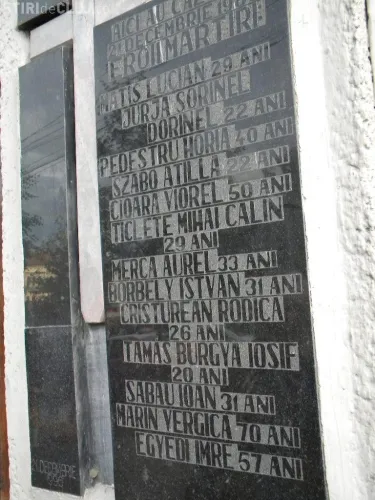 STIRIdeCLUJ
AICI AU CĂZUT
21 DECEMBRIE 1989
EROII MARTIRI:
MATIS LUCIAN 29 ANI
JURJA SORINEL
DORINEL 22 ANI
PEDESTRU HORIA 40 ANI
SZABO ATILLA 22 ANI
CIOARA VIOREL 50 ANI
TICLETE MIHAI CALIN
29 ANI
MERCA AUREL 33 ANI
BORBELY ISTVAN 31 ANI
CRISTUREAN RODICA
26 ANI
TAMAS BURGYA IOSIF
20 ANI
SABAU IOAN 31 ANI
MARIN VERGICA 70 ANI
EGYEDI IMRE 57 ANI
DECEMBRIE